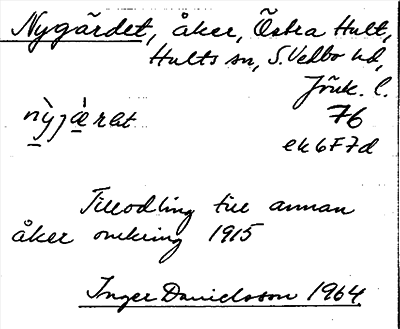 Nygärdet, åker, Östra Hult,
Hults sn, S. Vedbo hd,
Jönk. l.
76
ek 6F7d
Tillodling till annan
åker omkring 1915
Inger Danielsson 1964